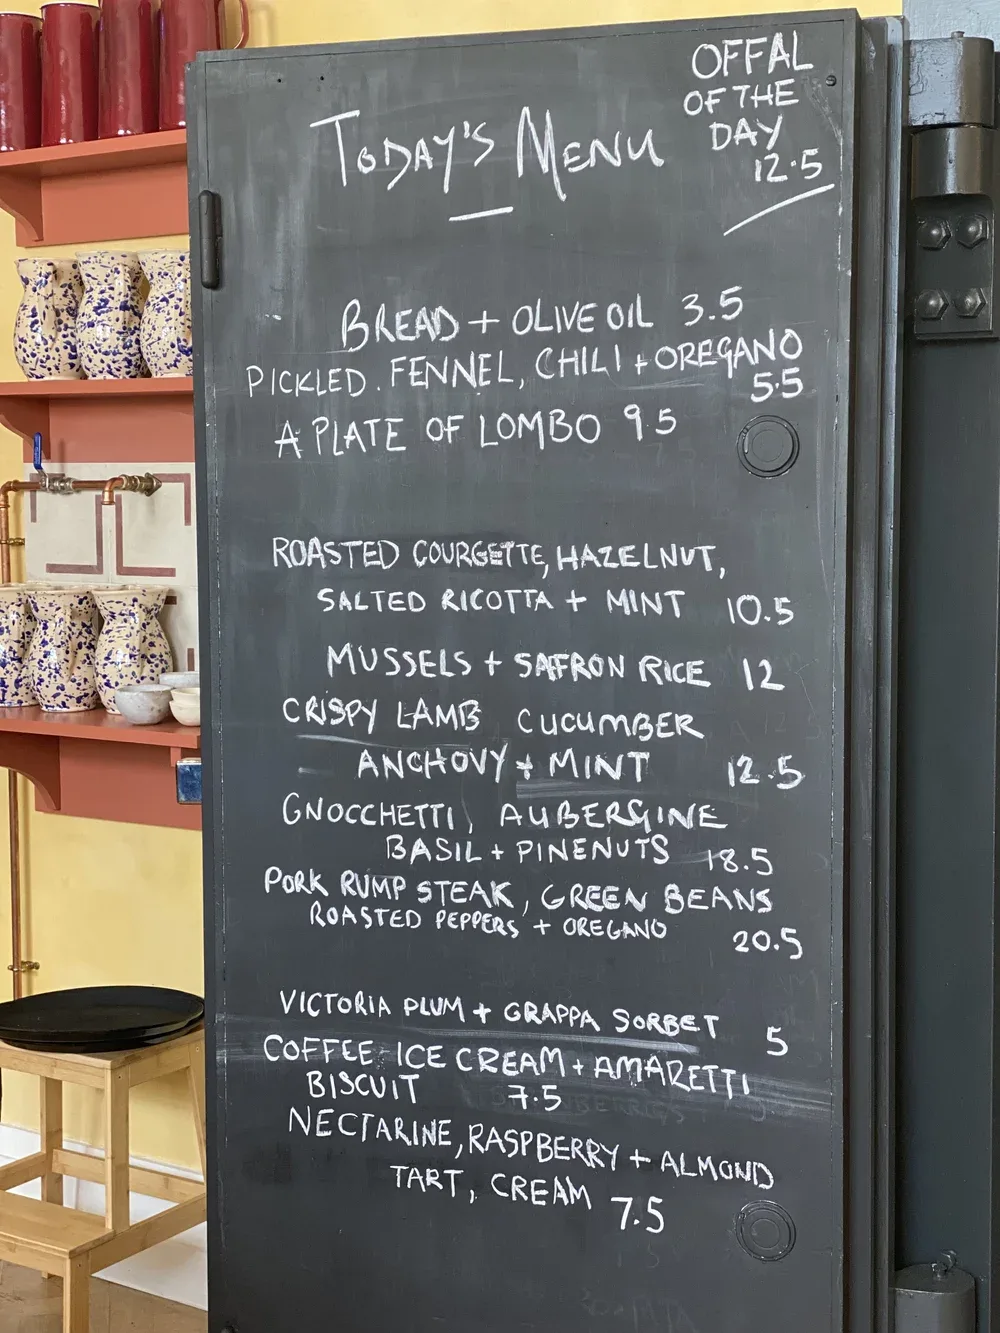 OFFAL
OF THE
DAY
12.5
TODAY'S MENU
BREAD + OLIVE OIL 3.5
PICKLED. FENNEL, CHILI + OREGANO
5.5
A PLATE OF LOMBO 9.5
ROASTED COURGETTE, HAZELNUT,
SALTED RICOTTA + MINT 10.5
MUSSELS + SAFFRON RICE 12
CRISPY LAMB CUCUMBER
ANCHOVY + MINT 12.5
GNOCCHETTI, AUBERGINE
BASIL + PINENUTS 18.5
PORK RUMP STEAK, GREEN BEANS
ROASTED PEPPERS + OREGANO
20.5
VICTORIA PLUM + GRAPPA SORBET 5
COFFEE ICE CREAM + AMARETTI
BISCUIT 7.5
NECTARINE, RASPBERRY + ALMOND
TART, CREAM 7.5